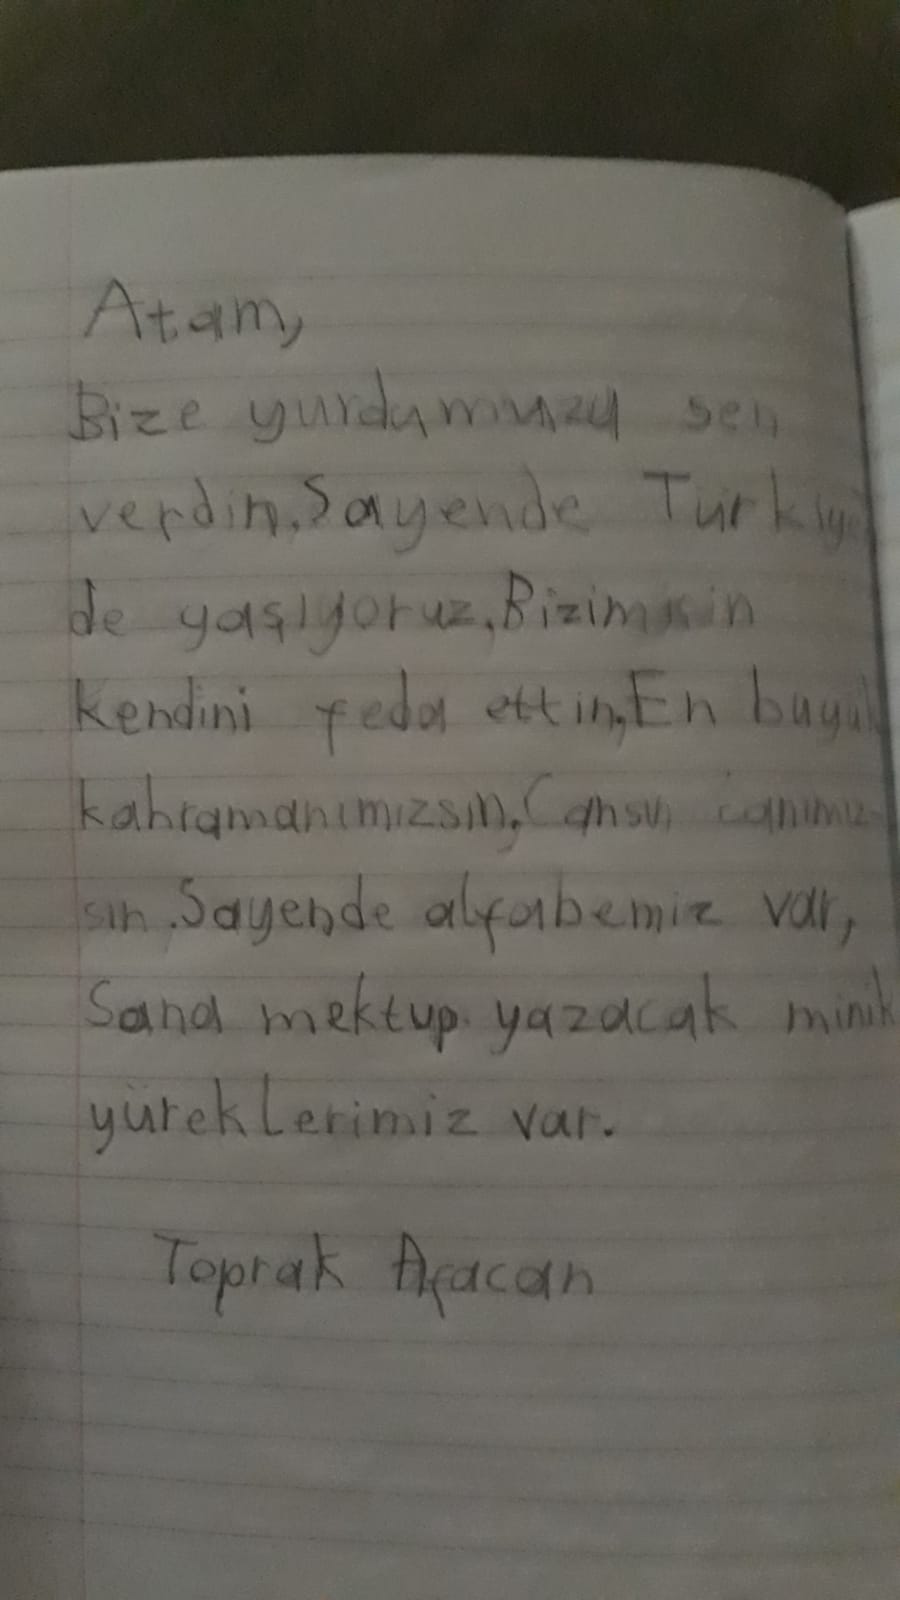 Atam,
Bize yurdumuzu sen
verdin. Sayende Türkiye
de yaşıyoruz. Bizim için
kendini feda ettin. En büyük
kahramanımızsın. Cansın canımız
sın. Sayende alfabemiz var,
Sana mektup yazacak minik
yüreklerimiz var.
Toprak